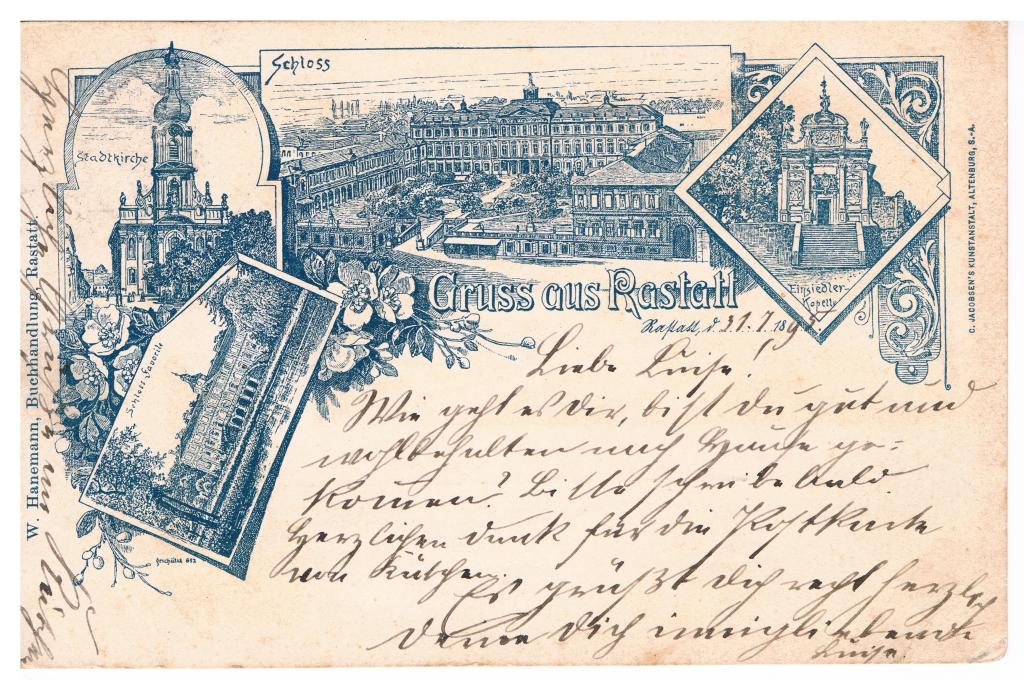 Stadtkirche
Schloss
Einsiedler-
Kapelle
Schloss Favorite
Gruss aus Rastatt
Rastatt, d. 31.7.189
Liebe Luise!
Wie geht es Dir, bist Du gut und
wohlbehalten nach Hause ge=
kommen? Bitte schreibe bald.
Herzlichen Dank für die Postkarte
von
Es grüßt Dich recht herzlich
Deine Dich innigliebende
Luise.
W. Hanemann, Buchhandlung, Rastatt.
C. JACOBSEN'S KUNSTANSTALT, ALTENBURG, S.-A.